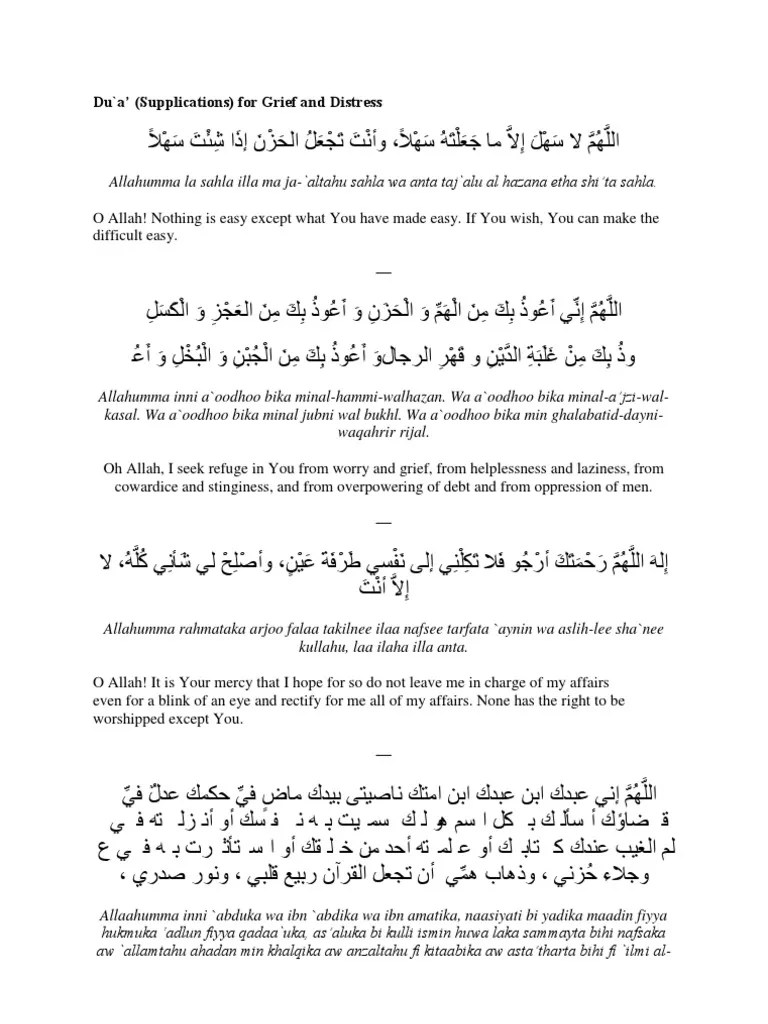 Du`a’ (Supplications) for Grief and Distress
اللَّهُمَّ لا سَهْلَ إِلاَّ ما جَعَلْتَهُ سَهْلاً، وأنْتَ تَجْعَلُ الحَزْنَ إذَا شِئْتَ سَهْلاً
Allahumma la sahla illa ma ja-`altahu sahla wa anta taj`alu al hazana etha shi’ta sahla.
O Allah! Nothing is easy except what You have made easy. If You wish, You can make the
difficult easy.
—
اللَّهُمَّ إِنِّي أَعُوذُ بِكَ مِنَ الْهَمِّ وَ الْحَزَنِ وَ أَعُوذُ بِكَ مِنَ العَجْزِ وَ الْكَسَلِ
وذُ بِكَ مِنْ غَلَبَةِ الدَّيْنِ و قَهْرِ الرجالوَ أَعُوذُ بِكَ مِنَ الْجُبْنِ وَ الْبُخْلِ وَ أَعُ
Allahumma inni a`oodhoo bika minal-hammi-walhazan. Wa a`oodhoo bika minal-a’jzi-wal-
kasal. Wa a`oodhoo bika minal jubni wal bukhl. Wa a`oodhoo bika min ghalabatid-dayni-
waqahrir rijal.
Oh Allah, I seek refuge in You from worry and grief, from helplessness and laziness, from
cowardice and stinginess, and from overpowering of debt and from oppression of men.
—
إِلهَ اللَّهُمَّ رَحْمَتَكَ أرْجُو فَلا تَكِلْنِي إلى نَفْسِي طَرْفَةَ عَيْنٍ، وأصْلِحْ لي شَأنِي كُلَّهُ، لا
إِلاَّ أنْتَ
Allahumma rahmataka arjoo falaa takilnee ilaa nafsee tarfata `aynin wa aslih-lee sha`nee
kullahu, laa ilaha illa anta.
O Allah! It is Your mercy that I hope for so do not leave me in charge of my affairs
even for a blink of an eye and rectify for me all of my affairs. None has the right to be
worshipped except You.
—
اللَّهُمَّ إني عبدك ابن عبدك ابن امتك ناصيتى بيدك ماضٍ فيِّ حكمك عدلٌ فيِّ
قضاؤك أسألك بكل اسم هو لك سميت به نفسك أو أنزلته في
لم الغيب عندك كتابك أو علمته أحد من خلقك أو استأثرت به في ع
وجلاءِ حُزني ، وذهاب همِّي أن تجعل القرآن ربيع قلبي ، ونور صدري ،
Allaahumma inni `abduka wa ibn `abdika wa ibn amatika, naasiyati bi yadika maadin fiyya
hukmuka ’adlun fiyya qadaa`uka, as’aluka bi kulli ismin huwa laka sammayta bihi nafsaka
aw `allamtahu ahadan min khalqika aw anzaltahu fi kitaabika aw asta’tharta bihi fi `ilmi al-